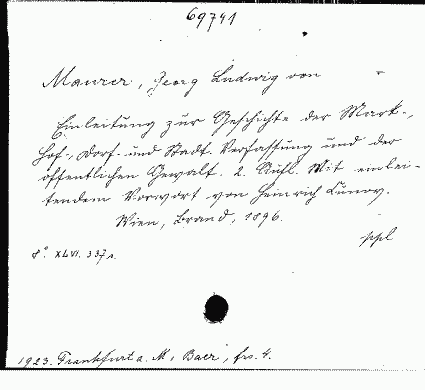 69741
Maurer, Georg Ludwig von
Einleitung zur Geschichte der Mark-,
Hof-, Dorf- und Stadt-Verfassung und der
öffentlichen Gewalt. 2. Aufl. Mit einlei-
tendem Vorwort von Heinrich Cunow.
Wien, Brand, 1896.
ppl
8°. XLVI. 337 s.
1923. Frankfurt a. M., Baer, frs. 4.